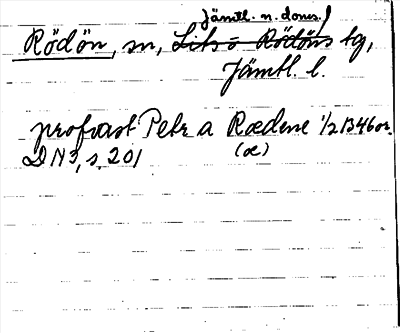 Jämtl. n. doms.
Rödön, sn, Lits o Rödöns tg,
Jämtl. l.
profvast Petr a Rœdene 1/2 1346 or.
(æ)
DN 3, s. 201